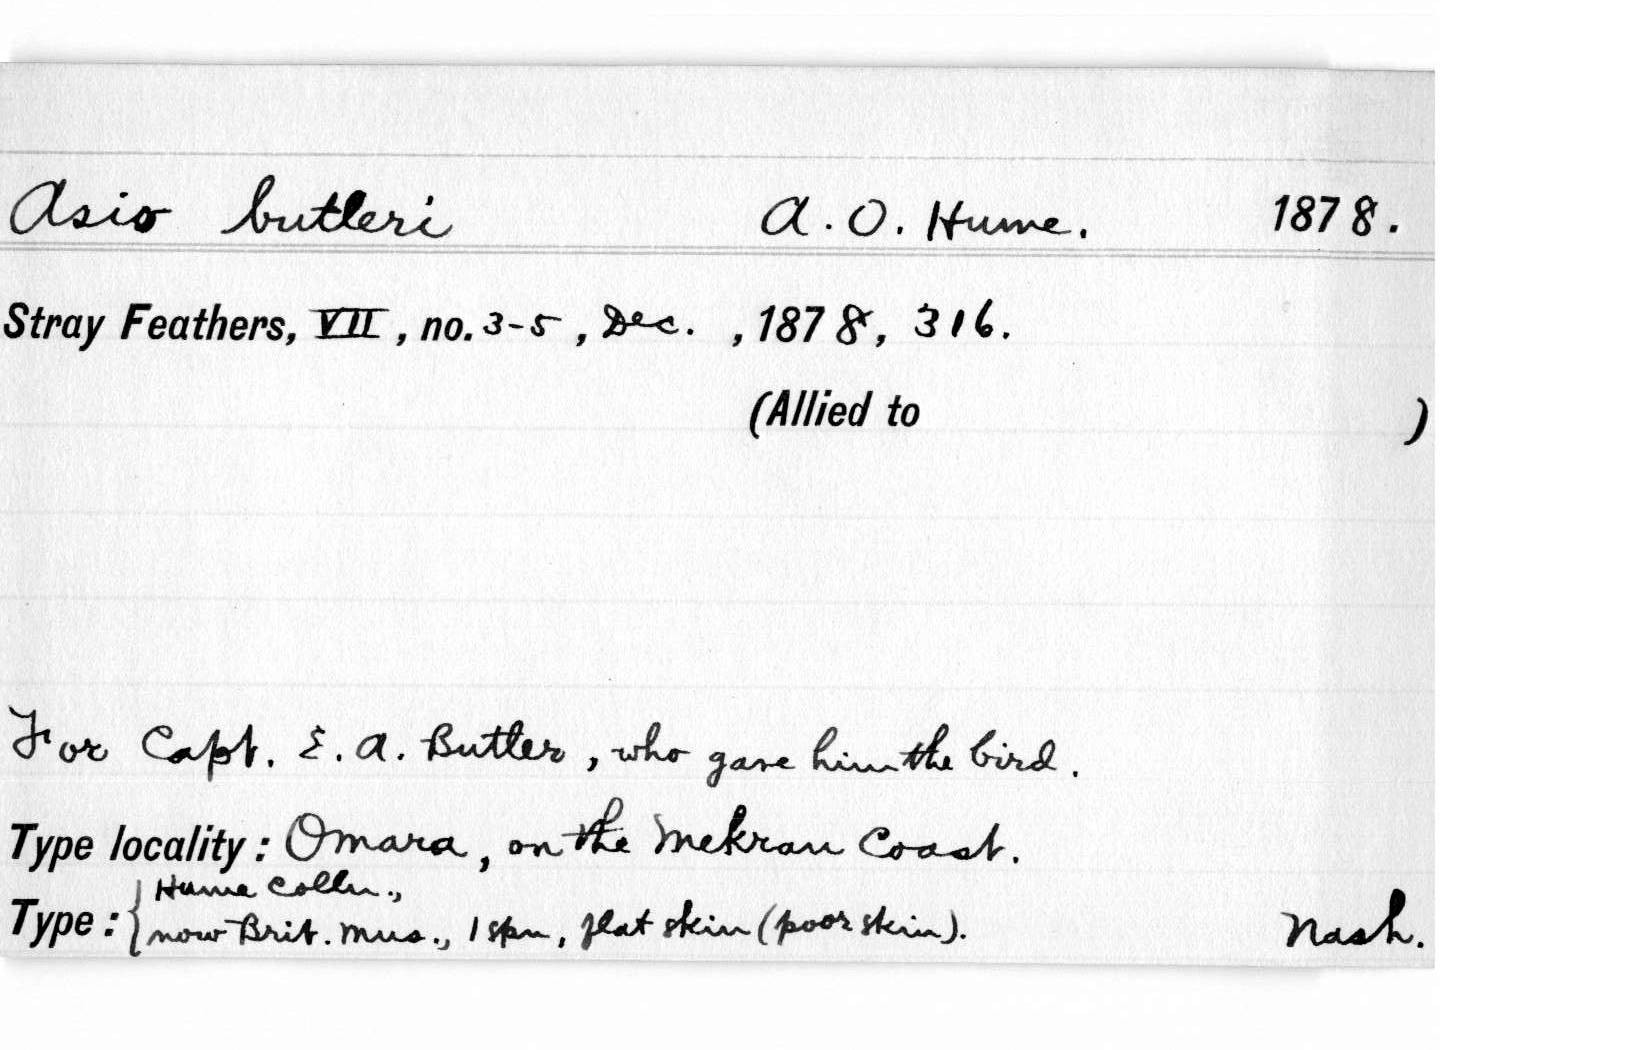 Asio butleri A. O. Hume. 1878.
Stray Feathers, VII, no. 3-5, Dec. , 1878, 316.
(Allied to )
For Capt. E. A. Butler, who gave him the bird.
Type locality: Omara, on the Mekran Coast.
Type: { Hume Colln.,
now Brit. Mus., 1 spn, flat skin (poor skin). Nash.